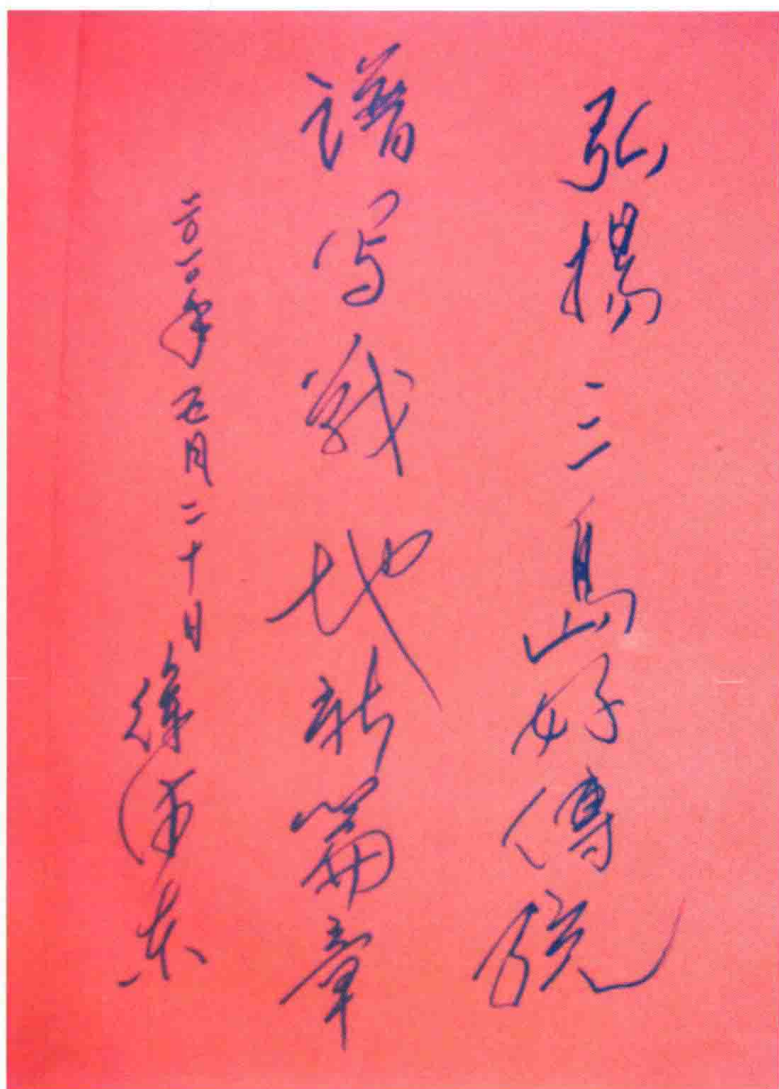 弘揚三島好傳統
谱写戰地新篇章
二〇一〇年五月二十日 徐